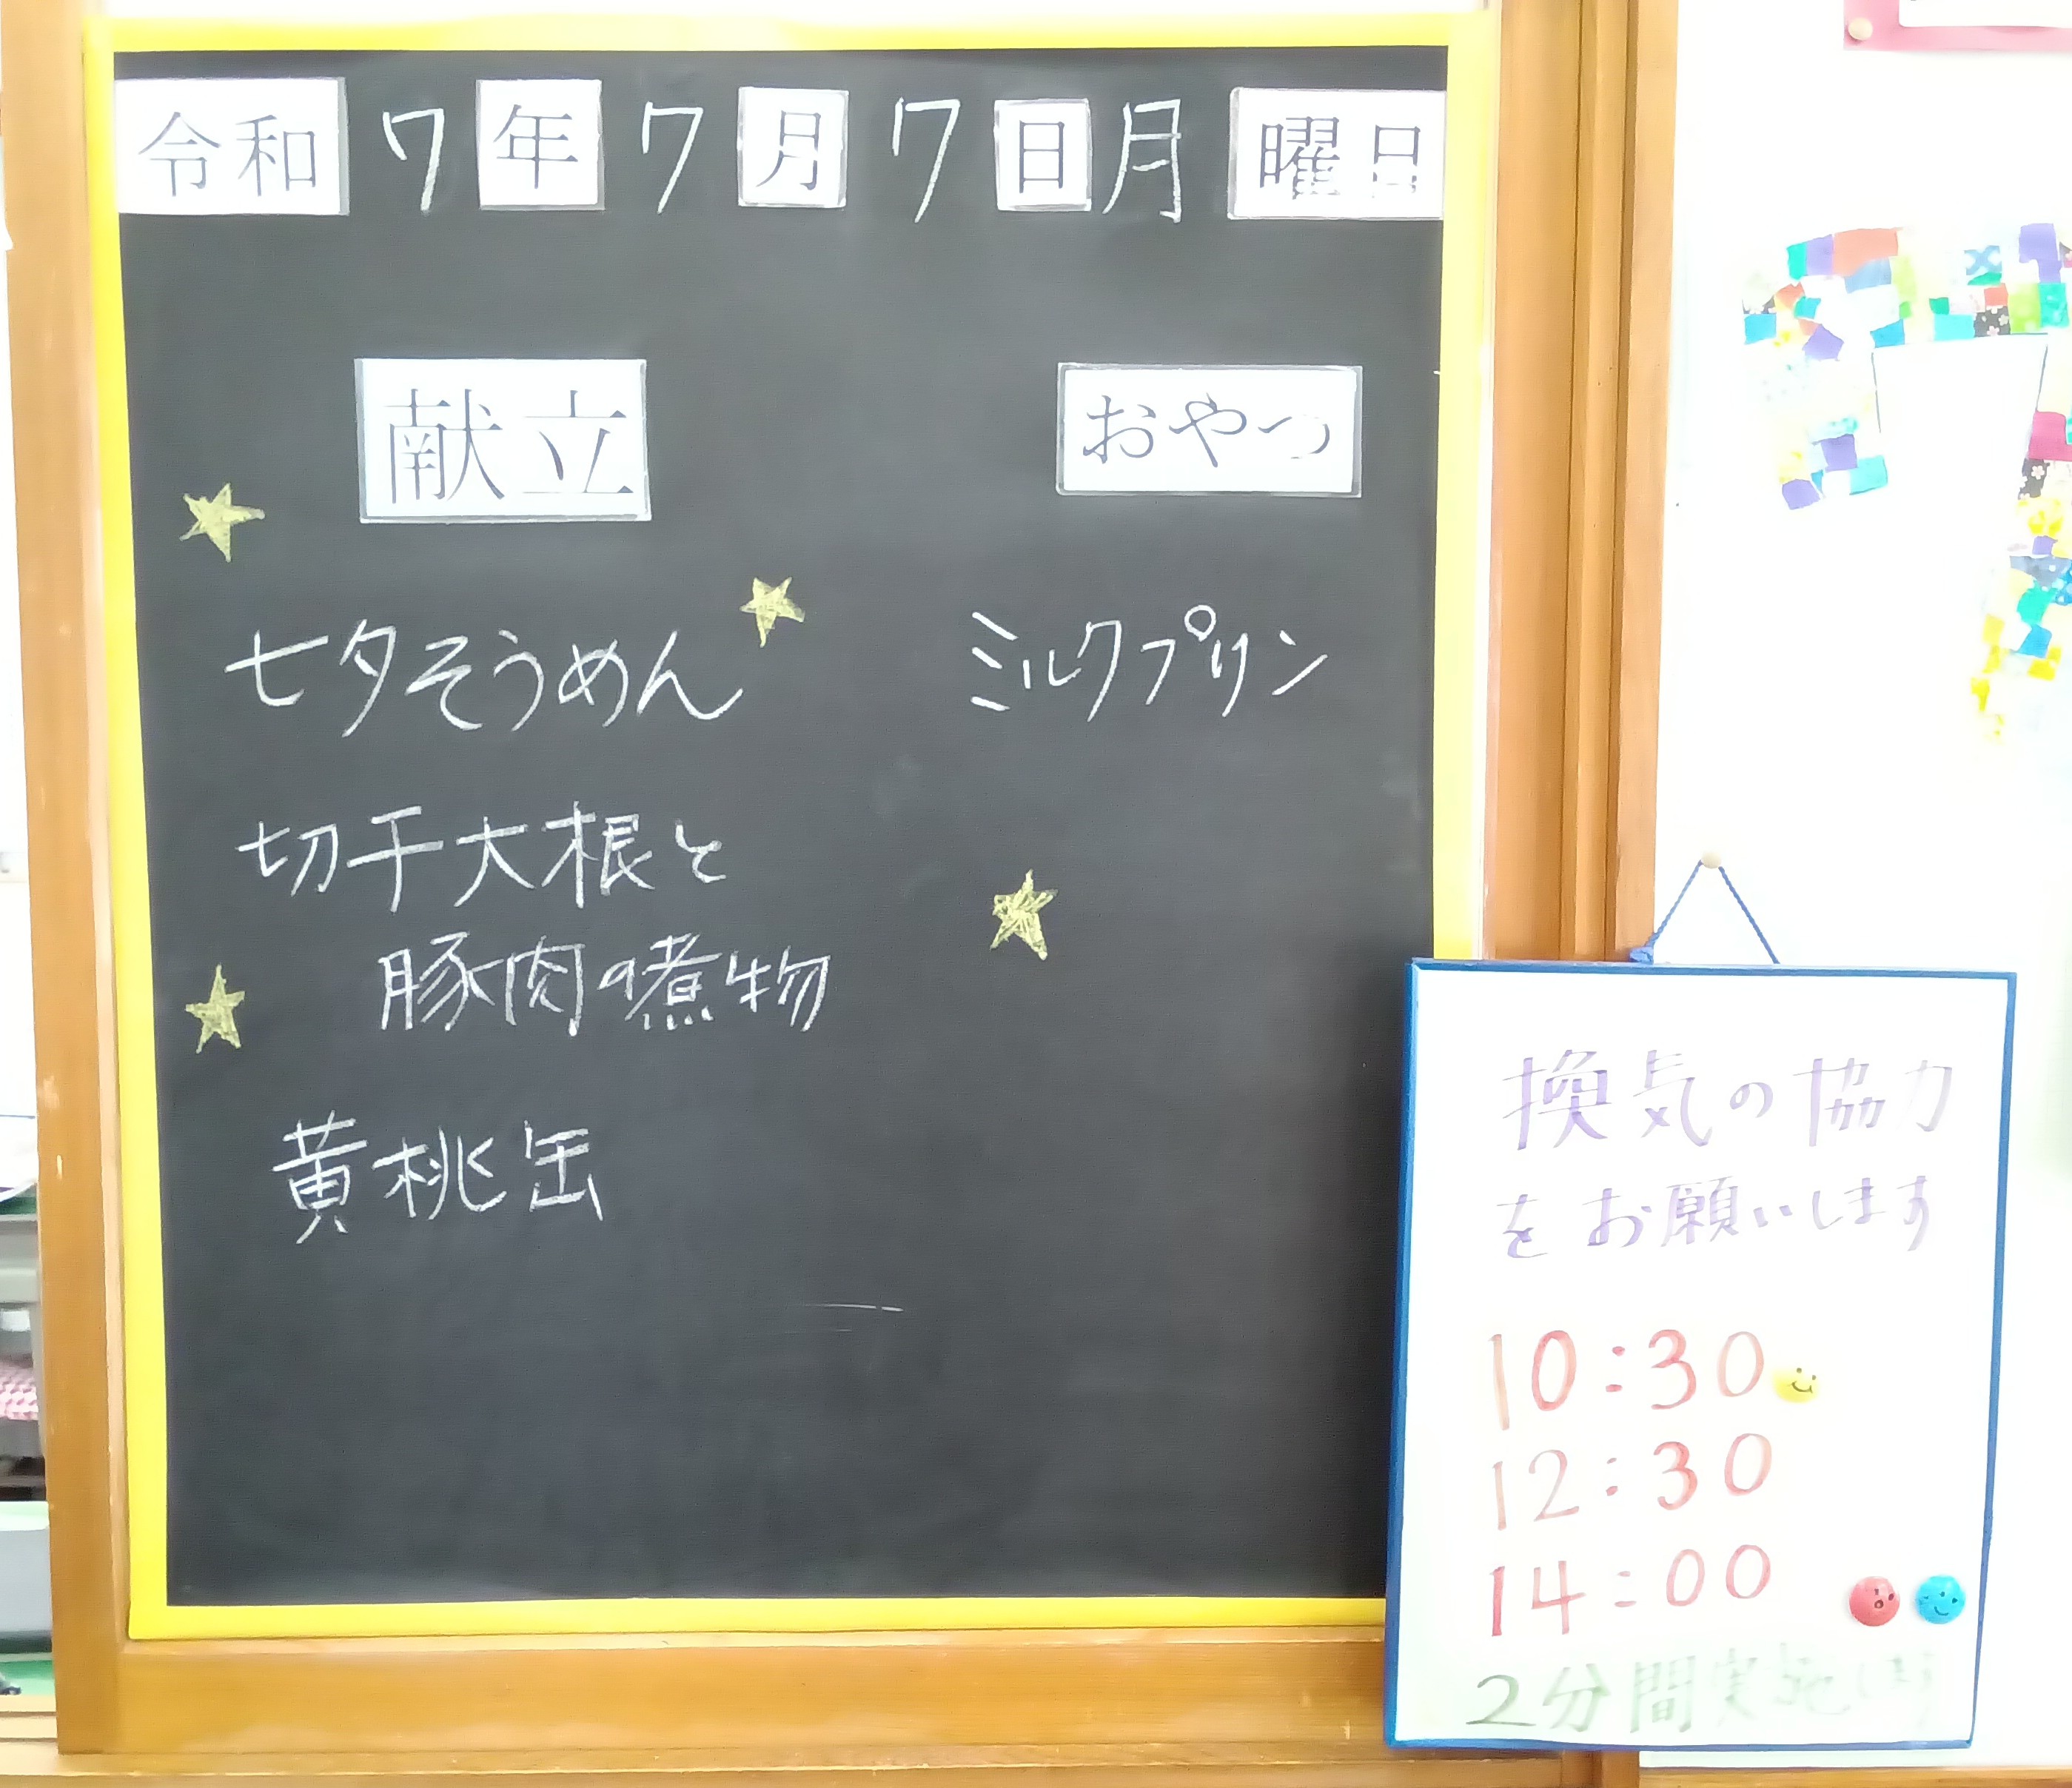 令和7年7月7日月曜日
献立
おやつ
七夕そうめん
ミルクプリン
切干大根と
豚肉の煮物
黄桃缶
換気の協力
をお願いします
10:30
12:30
14:00
2分間実施します